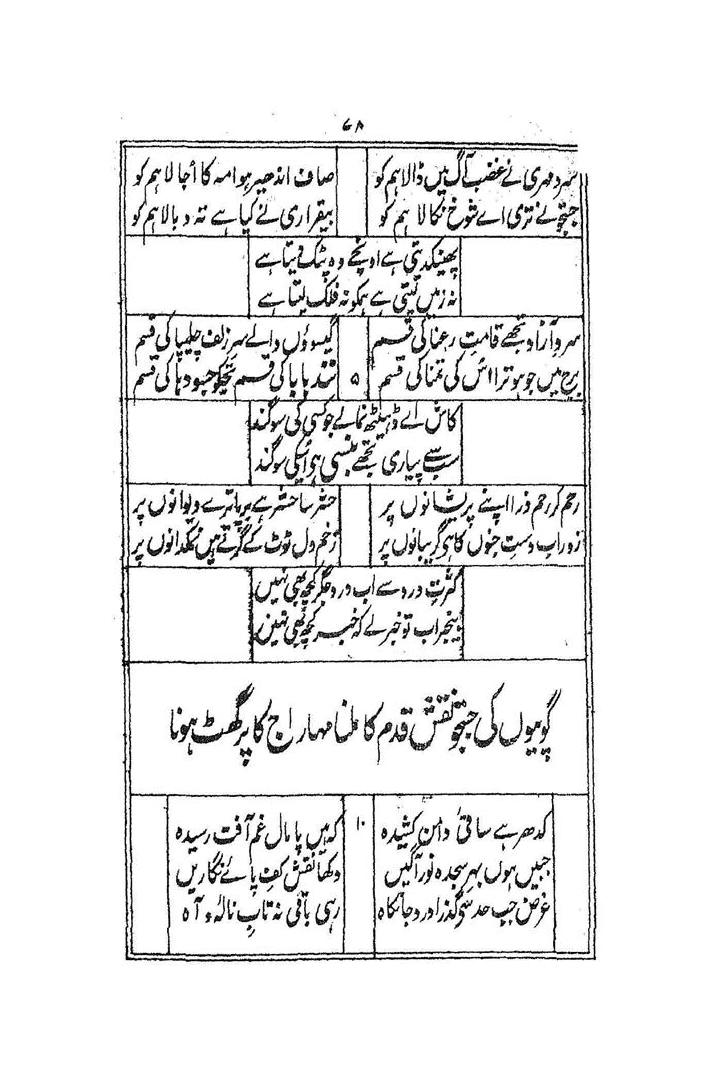 ۶۸
سرد مہری نے غضب آگ میں ڈالا ہم کو صاف اندھیر ہوا مہ کا اُجالا ہم کو
جستجو نے تری اے شوخ نکالا ہم کو بیقراری نے کیا ہے تہ و بالا ہم کو
پھینکدیتی ہے اونچے وہ پٹک دیتا ہے
نہ زمیں لیتی ہے ہمکو نہ فلک لیتا ہے
سرو آزاد تجھے قامتِ رعنا کی قسم گیسوؤں والے سرِ زلف چلیپا کی قسم
برج میں جو ہو ترا اس کی تمنا کی قسم ۵ نند بابا کی قسم تجکو جسودہا کی قسم
کاش اے ڈہیٹھ نمانے جو کسی کی سوگند
سب سے پیاری تجھے بنسی ہو اُسکی سوگند
رحم کر رحم ذرا اپنے پریشانوں پر حشر سا حشر ہے برپا ترے دیوانوں پر
زور اب دستِ جنوں کا ہی گریبانوں پر زخم دل ٹوٹ کے گرتے ہیں نمکدانوں پر
کثرتِ درد سے اب درد جگر کچھ بھی نہیں
بیخبر اب تو خبر لے کہ خبر کچھ بھی نہیں
گوپیوں کی جستجو نقش قدم کا ملنا مہاراج کا پرگھٹ ہونا
کدھر ہے ساقیٔ دامن کشیدہ ۱۰ کہ ہیں پامال غم آفت رسیدہ
جبیں ہوں بہر سجدہ نور آگیں دکھا نقش کفِ پائے نگاریں
غرض جب حد سے گذرا درد جانکاہ رہی باقی نہ تابِ نالہ و آہ